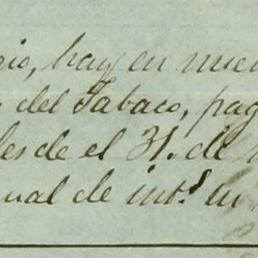 hay en
del Tabaco, pag
desde el 31. de
ual de int.s en